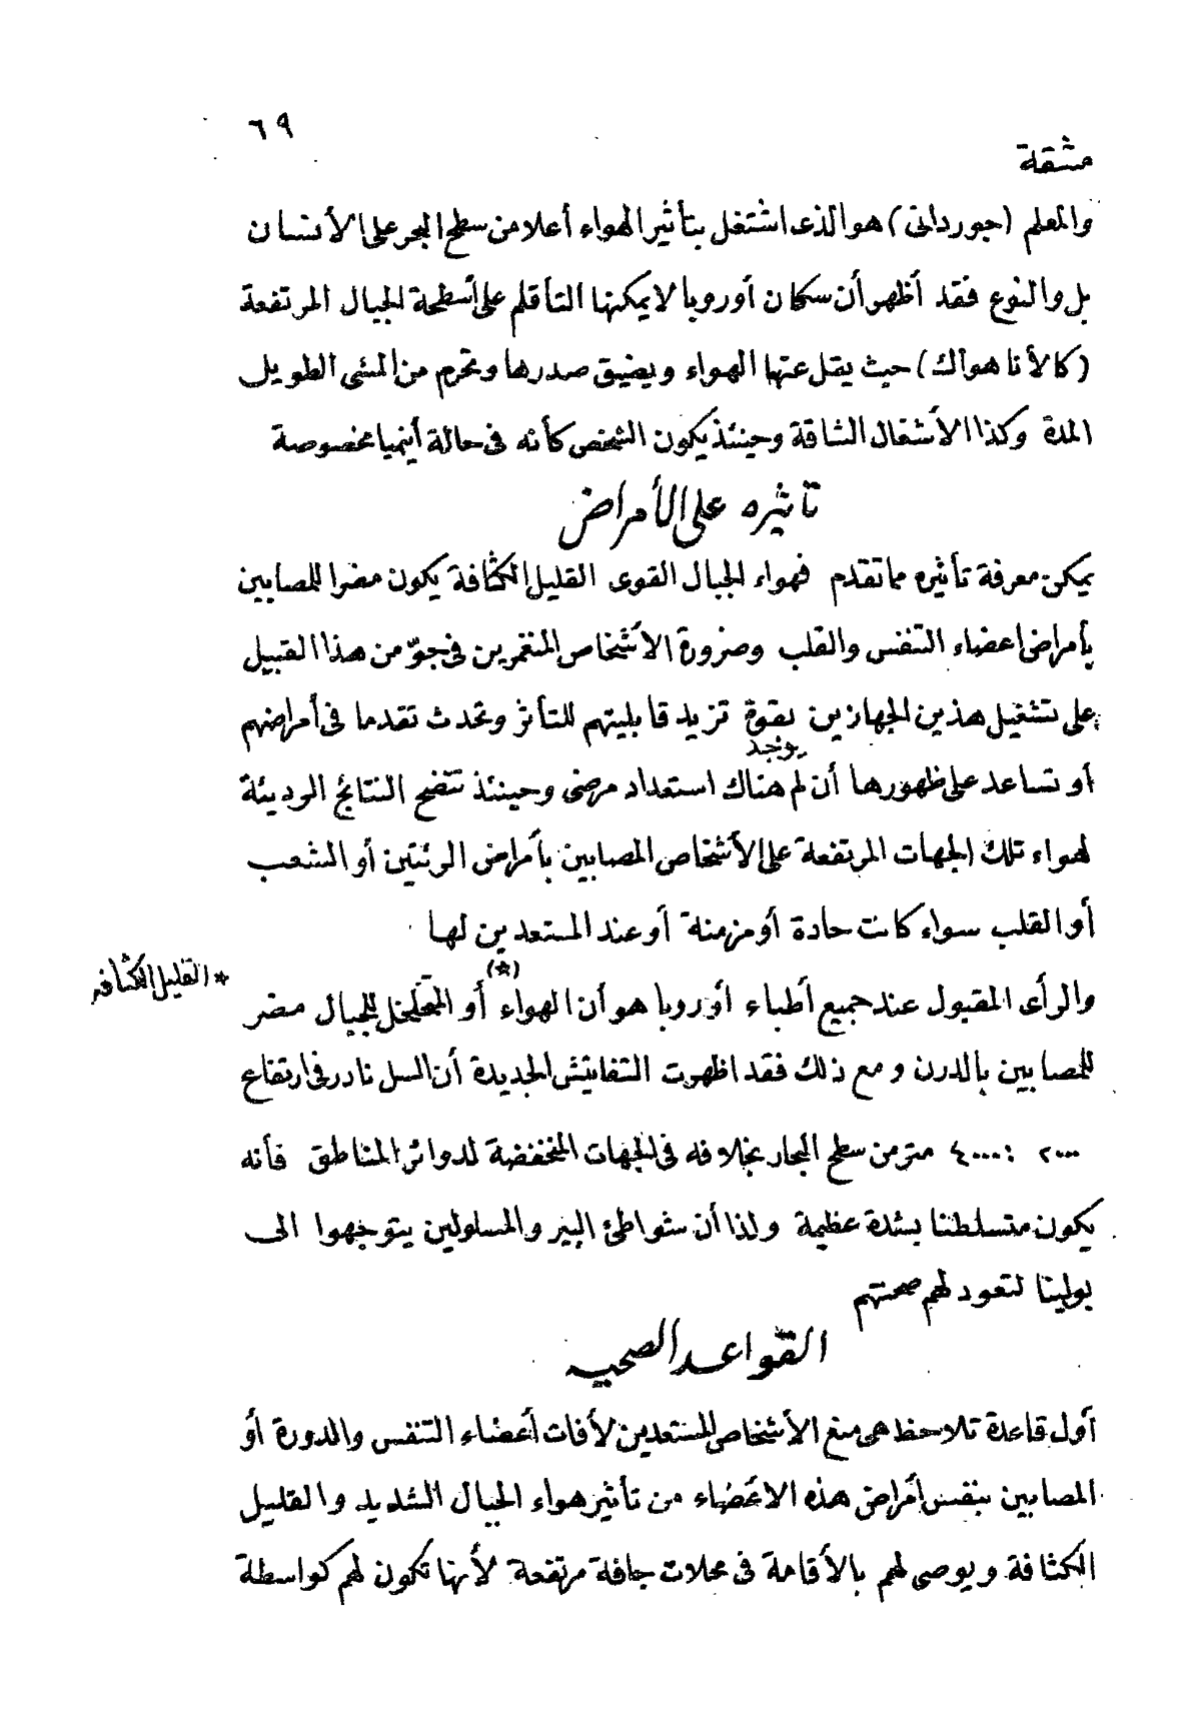 ٦٩
مشقة
والمعلم (جورداني) هو الذى اشتغل بتأثير الهواء أعلا من سطح البحر على الأنسان
بل والنوع فقد أظهر أن سكان أوروبا لا يمكنها التأقلم على أسطحة الجبال المرتفعة
(كالأناهواك) حيث يقل عنها الهواء ويضيق صدرها وتحرم من المشى الطويل
المدة وكذا الأشغال الشاقة وحينئذ يكون الشخص كأنه فى حالة أنيميا مخصوصة
تاثيره على الأمراض
يمكن معرفة تأثيره مما تقدم فهواء الجبال القوى القليل الكثافة يكون مضرا للمصابين
بأمراض اعضاء التنفس والقلب وضرورة الأشخاص المنغمرين فى جوّ من هذا القبيل
على تشغيل هذين الجهازين بقوة تزيد قابليتهم للتأثر وتحدث تقدما فى أمراضهم
أو تساعد على ظهورها أن لم يوجد هناك استعداد مرضى وحينئذ تتضح النتائج الرديئة
لهواء تلك الجهات المرتفعة على الأشخاص المصابين بأمراض الرئتين أو الشعب
أو القلب سواء كانت حادة أو مزمنة أو عند المستعدين لها
والرأى المقبول عند جميع أطباء أوروبا هو أن الهواء (*) أو المتخلخل للجبال مضر
* القليل الكثافه
للمصابين بالدرن و مع ذلك فقد اظهرت التفاتيش الجديدة أن السل نادر فى ارتفاع
٢٠٠٠ : ٤٠٠٠ متر من سطح البحار بخلافه فى الجهات المنخفضة لدوائر المناطق فأنه
يكون متسلطنا بشدة عظيمة ولذا أن شواطئ البير والمسلولين يتوجهوا الى
بوليتا لتعود لهم صحتهم
القواعد الصحيه
أول قاعدة تلاحظ هى منع الأشخاص المستعدين لأفات أعضاء التنفس والدورة أو
المصابين بنفس أمراض هذه الاعضاء من تأثير هواء الجبال الشديد والقليل
الكثافة ويوصى لهم بالأقامة فى محلات جافة مرتفعة لأنها تكون لهم كواسطة